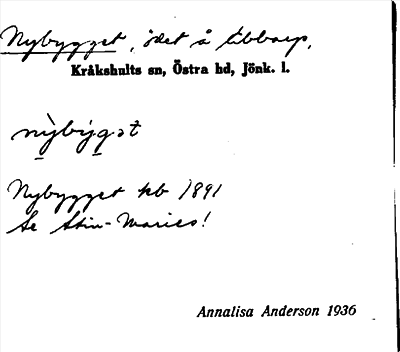 Nybygget, jdet å Ubbarp,
Kråkshults sn, Östra hd, Jönk. l.
nỳbýgət
Nybygget kb 1891
Se Stin-Maries!
Annalisa Anderson 1936